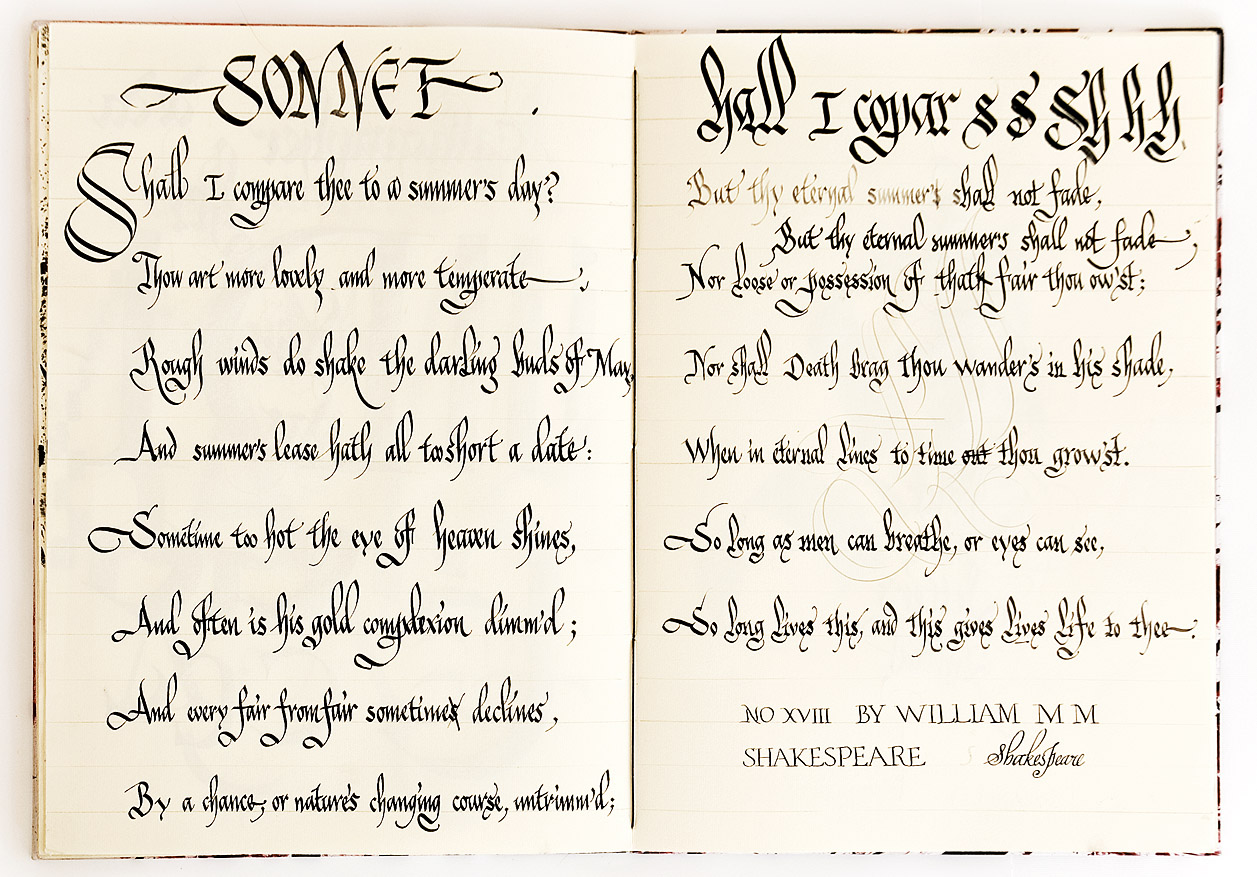 SONNET .
Shall I compare thee to a summer's day?
Thou art more lovely and more temperate,
Rough winds do shake the darling buds of May,
And summer's lease hath all too short a date:
Sometime too hot the eye of heaven shines,
And often is his gold complexion dimm'd;
And every fair from fair sometimes declines,
By a chance, or nature's changing course, untrimm'd;
hall I copar s s Sh h h
But thy eternal summer's shall not fade,
But thy eternal summers shall not fade,
Nor loose or possession of that fair thou ow'st;
Nor shall Death brag thou wander's in his shade,
When in eternal lines to time out thou grow'st.
So long as men can breathe, or eyes can see,
So long lives this, and this gives lives life to thee.
NO XVIII BY WILLIAM M M
SHAKESPEARE Shakespeare